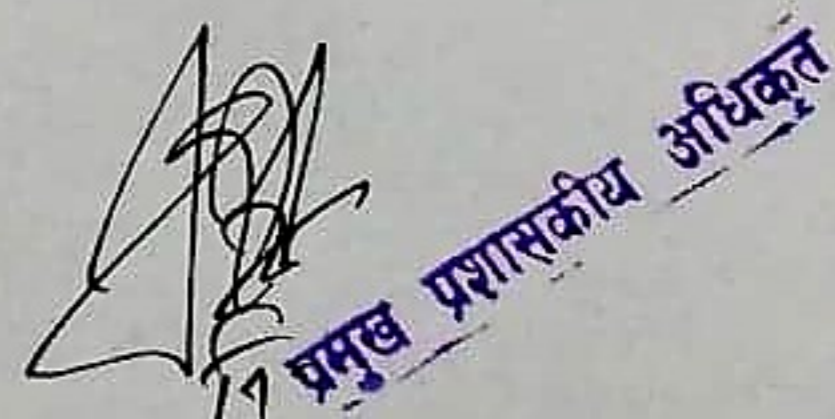 प्रमुख प्रशासकीय अधिकृत
17